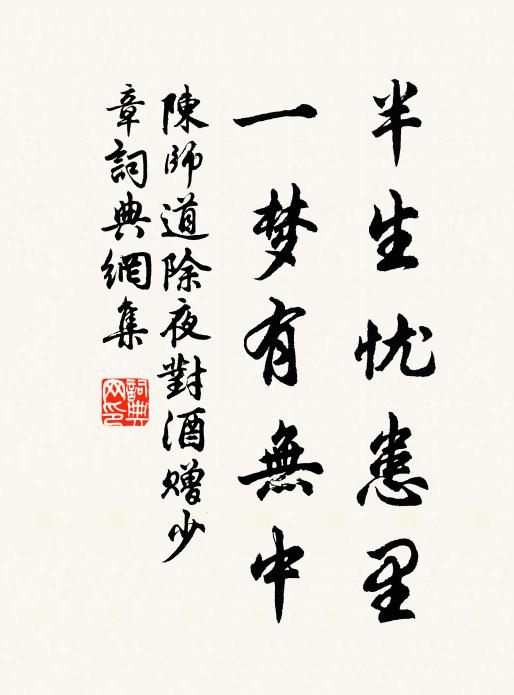 半生忧患里
一梦有無中
陳師道除夜對酒赠少
章詞典網集
詞典
网印